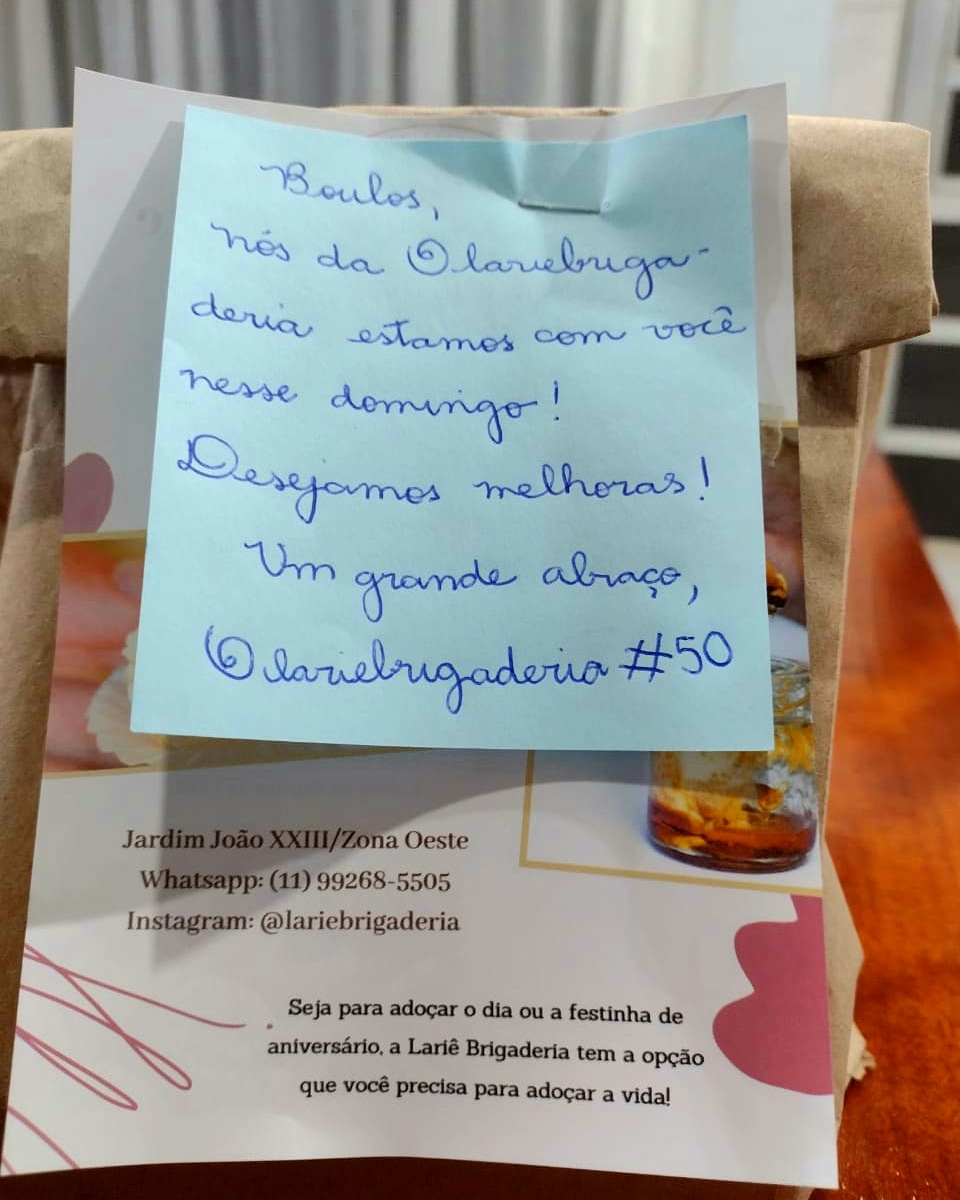 Boulos,
nós da @lariebriga-
deria estamos com você
nesse domingo!
Desejamos melhoras!
Um grande abraço,
@lariebrigaderia #50
Jardim João XXIII/Zona Oeste
Whatsapp: (11) 99268-5505
Instagram: @lariebrigaderia
Seja para adoçar o dia ou a festinha de
aniversário, a Lariê Brigaderia tem a opção
que você precisa para adoçar a vida!